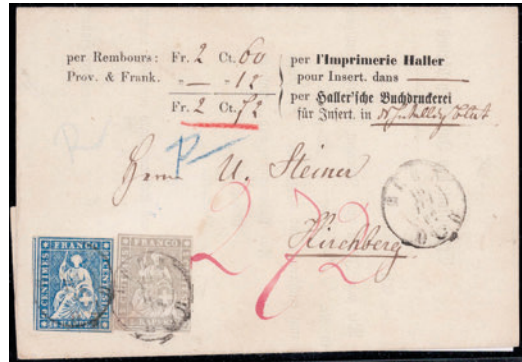 per Rembours: Fr. 2 Ct. 60
Prov. & Frank. " — " 12
Fr. 2 Ct. 72
per l'Imprimerie Haller
pour Insert. dans
per Haller'sche Buchdruckerei
für Insert. in
Herrn U. Steiner
Kirchberg
272
BERN
FRANCO
FRANCO